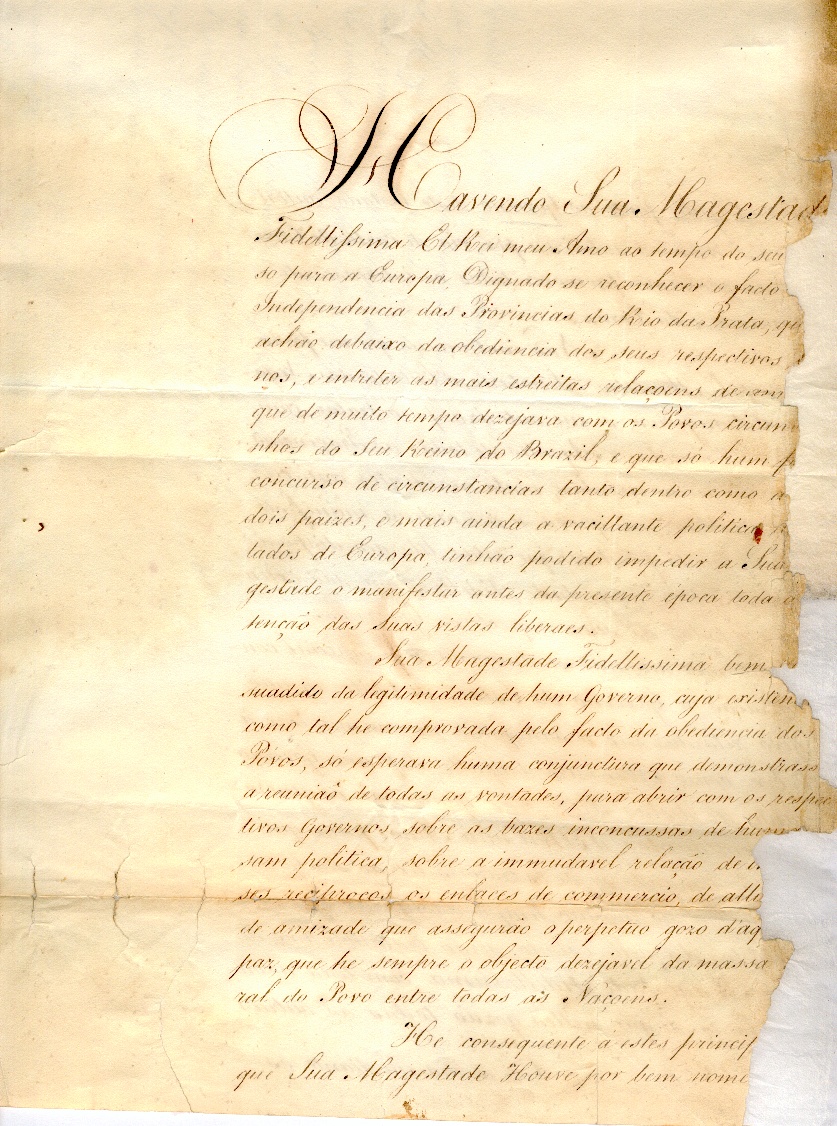 Havendo Sua Magestad
Fidellissima El Rei meu Amo ao tempo do seu
so para a Europa, Dignado se reconhecer o facto
Independencia das Provincias do Rio da Prata, qu
achão debaixo da obediencia dos seus respectivos
nos, e entreter as mais estreitas relaçoens de am
que de muito tempo dezejava com os Povos circum
nhos do Seu Reino do Brazil, e que só hum p
concurso de circunstancias tanto dentro como
dois paizes, e mais ainda a vacillante politica
tados de Europa, tinhão podido impedir a Sua
gestade o manifestar antes da presente epoca toda a
tenção das Suas vistas liberaes.
Sua Magestade Fidellissima bem
suadido da legitimidade de hum Governo, cuja existen
como tal he comprovada pelo facto da obediencia dos
Povos, só esperava huma conjunctura que demonstrass
a reuniaõ de todas as vontades, para abrir com os respec
tivos Governos, sobre as bazes inconcussas de huma
sam politica, sobre a immudavel relação de i
ses reciprocos, os enlaces de commercio, de alli
de amizade que assegurão o perpetuo gozo d'aq
paz, que he sempre o objecto dezejavel da massa
ral do Povo entre todas as Naçoens.
He consequente a estes princip
que Sua Magestade Houve por bem nome